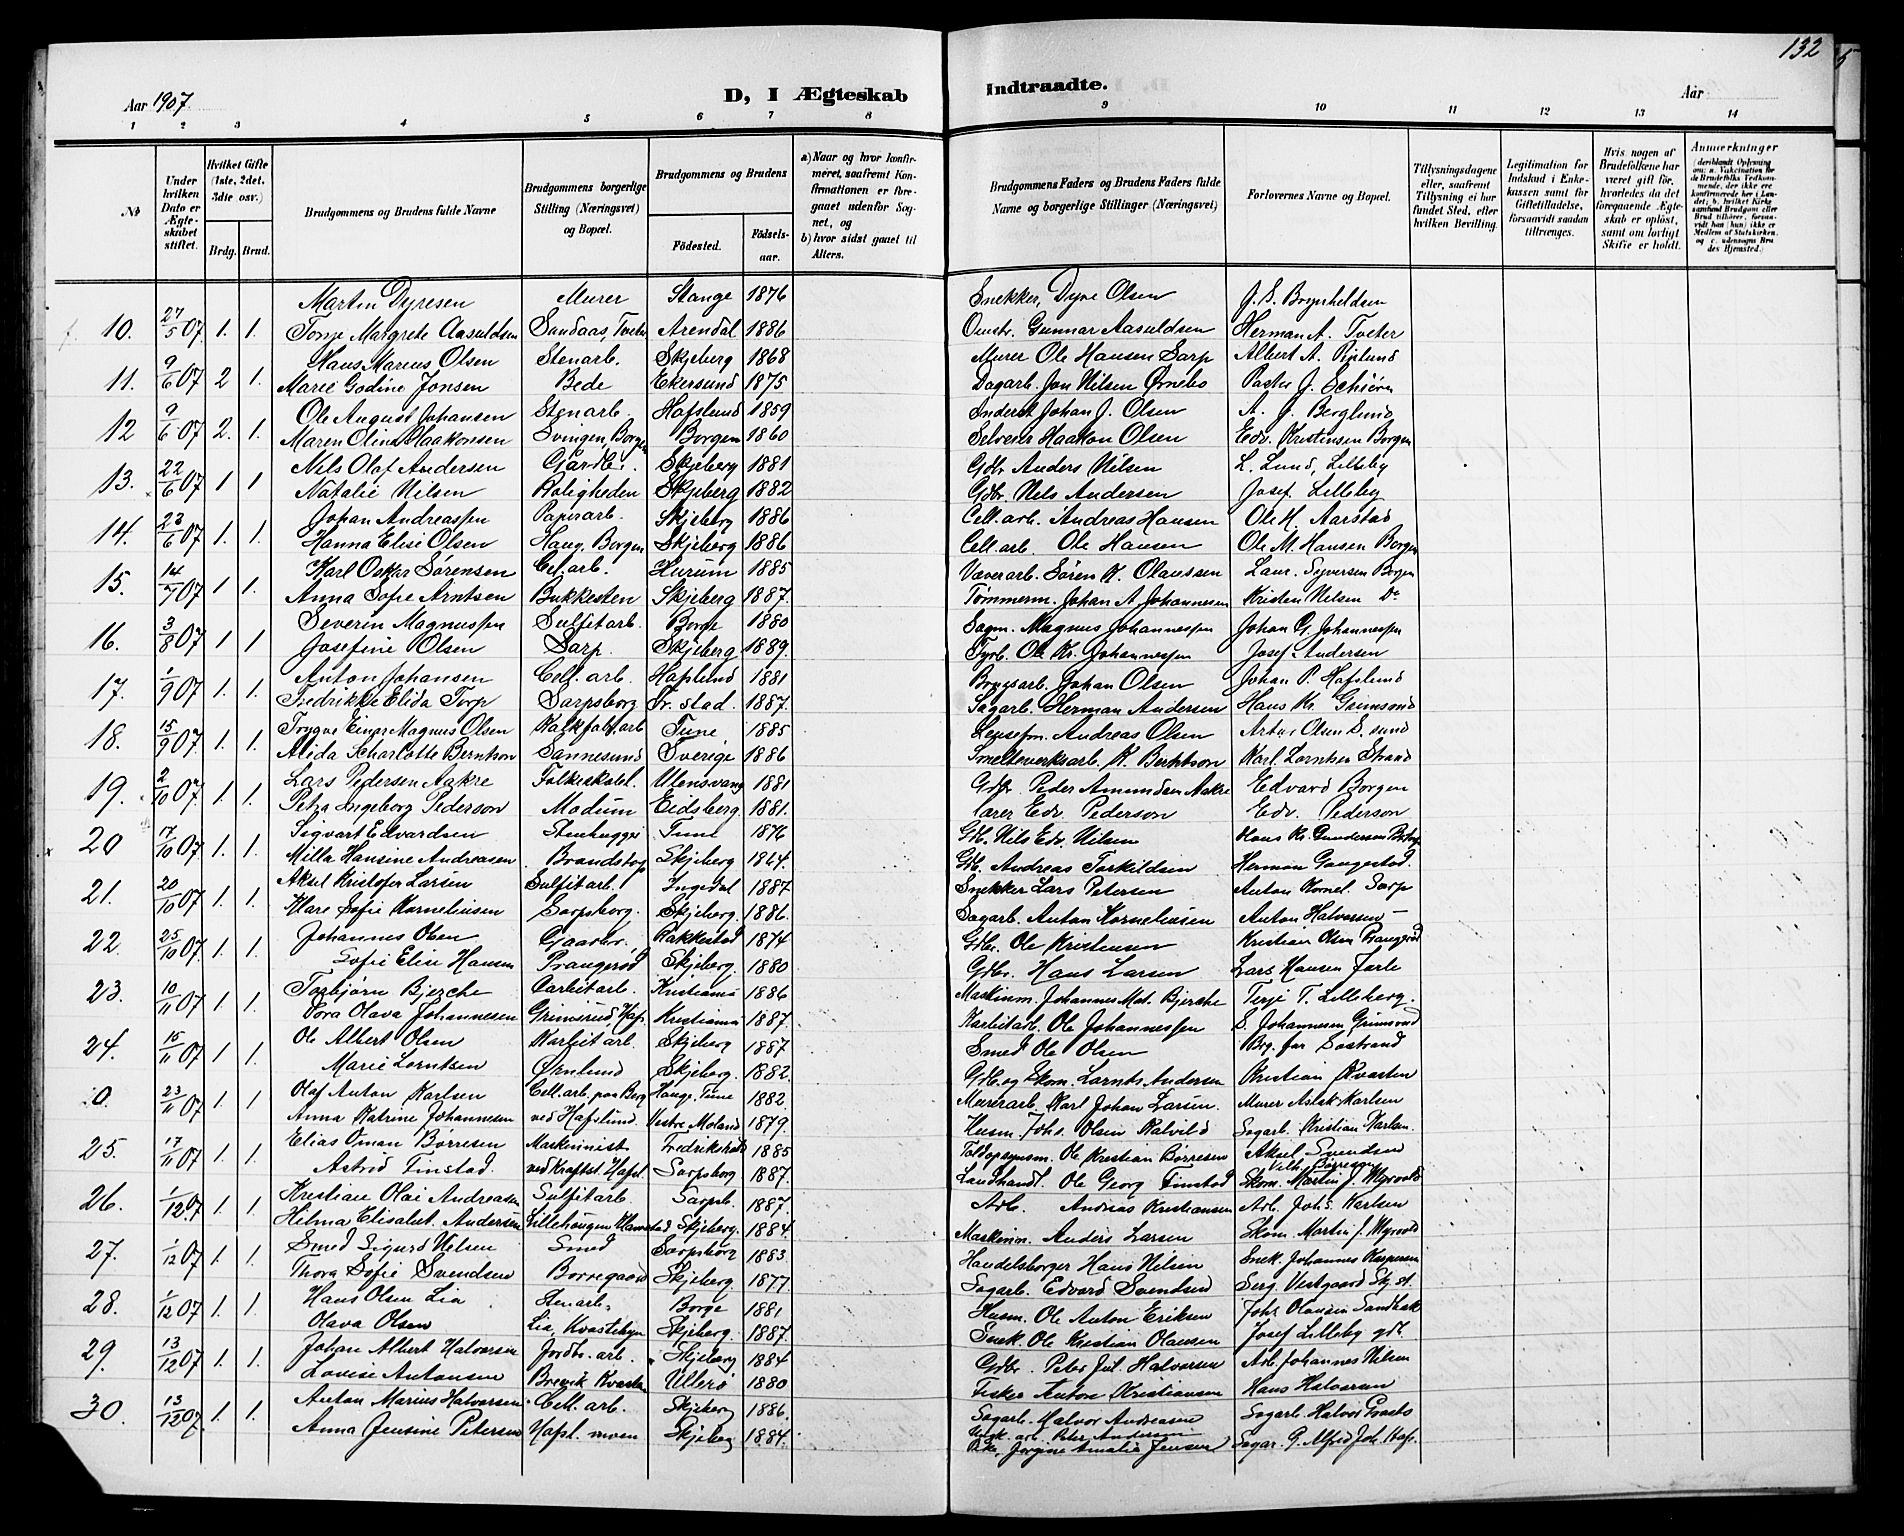 132
Aar 1907
D, I Ægteskab
Indtraadte.
Aar
1 2 3 4 5 6 7 8 9 10 11 12 13 14
No
Under hvilken Dato er Ægteskabet stiftet.
Hvilket Gifte (1ste, 2det, 3die osv.)
Brdg. Brud.
Brudgommens og Brudens fulde Navne
Brudgommens borgerlige Stilling (Næringsvei) og Bopæl.
Brudgommens og Brudens
Födested.
Födsels-aar.
a) Naar og hvor konfirmeret, saafremt Konfirmationen er foregaaet udenfor Sognet, og
b) hvor sidst gaaet til Alters.
Brudgommens Faders og Brudens Faders fulde Navne og borgerlige Stillinger (Næringsvei)
Forlovernes Navne og Bopæl.
Tillysningsdagene eller, saafremt Tillysning ei har fundet Sted, efter hvilken Bevilling.
Legitimation for Indskud i Enkekassen samt for Giftetilladelse, forsaavidt saadan tiltrænges.
Hvis nogen af Brudefolkene har været gift för, hvorledes da det foregaaende Ægteskab er oplöst, samt om lovligt Skifte er holdt.
Anmerkninger
Martin Dyresen Murer Stange 1876 Snekker, Dyre Olsen J. S. Brynheldsen
10. 27/5 07 1. 1. Tonje Margrete Aasuldsen Sandaas, Tveter Arendal 1886 Gunnar Aasuldsen Herman A. Tveter
Hans Marius Olsen Stenarb. Skjeberg 1868 Murer Ole Hansen Sarp Albert A.
11. 9/6 07 2 1. Marie Godine Jonsen Bede Ekersund 1875 Dagarb. Jon Nilsen Ørnebo Pastor J.
Ole August Johansen Stenarb. Hafslund 1859 Inderst Johan J. Olsen A. J. Berglund
12 9/6 07 2. 1. Maren Olina Haakonsen Svingen, Borgen Borgen 1860 Selveier Haakon Olsen Edv. Kristensen Borgen
Nils Olaf Andersen Gårdbr. Skjeberg 1881 Gdbr Anders Nilsen L. Lund, Lilleby
13. 22/6 07 1 1 Natalie Nilsen Roligheden Skjeberg 1882 Gdbr. Nels Andersen Josef Lilleby
Johan Andreassen Papirarb. Skjeberg 1886 Cell. arb. Andreas Hansen Ole H. Aarstad
14. 23/6 07 1. 1. Hanna Elise Olsen Haug, Borgen Skjeberg 1886 Cell. arb Ole Hansen Ole M. Hansen Borgen
Karl Oskar Sørensen Cel. arb. Hurum 1885 Væverarb. Sören K. Olaussen Laur. Syversen Borgen
15. 14/7 07 1 1 Anna Sofie Arntsen Bukkesten Skjeberg 1887. Tømmerm. Johan A. Johannesen Kristen Nilsen Do
Severin Magnussen Sulfitarb. Borge 1880 Sagm. Magnus Johannessen Johan G. Johannessen
16. 3/8 07 1 1 Josefine Olsen Sarp. Skjeberg 1889. Fyrb. Ole Kr. Johannessen Josef Andersen
Anton Johansen Cell. arb. Hafslund 1881 Johan Olsen Johan P. Hafslund
17. 1/9 07 1. 1. Fredrikke Elida Torp Sarpsborg Fr. stad. 1887. Sagarb. Herman Andersen Hans Kr. Grimsund
Trygve Einar Magnus Olsen Kalkfabr. arb Tune 1885 Lensefm. Andreas Olsen Artur Olsen S. sund
18. 15/9 07 1. 1. Alida Scharlotte Berntson Sannesund Sverige 1886 Smelteverksarb. K. Berntson Karl Lorntsen Strand
Lars Pedersen Aakre Folkeskolel. Ulensvang 1881 Gdbr Peder Amundsen Aakre Edvard Borgen
19. 2/10 07 1. 1. Petra Ingeborg Pederson Modum Eidsberg 1881. Lærer Edv. Pederson Edv. Pederson
Sigvart Edvardsen Stenhugger Tune 1876 Gdb. Nils Edv. Nilsen Hans Kr. Gundersen
20 17/10 07 1. 1. Milla Hansine Andreasen Brandstorp Skjeberg 1864. Gdb. Andreas Torkildsen Herman Gangestad.
Aksel Kristofer Larsen Sulfitarb. Ingedal 1887 Snekker Lars Petersen Anton Kornel. Sarp
21. 20/10 07 1. 1. Klara Sofie Korneliusen Sarpsborg. Skjeberg. 1886. Sagarb. Anton Korneliusen Anton Halvorsen
Johannes Olsen Gaardbr. Rakkestad 1874 Gdbr. Ole Kristensen Kristian Olsen Prangerød
22. 25/10 07 1. 1. Sofie Elise Hansen Prangerød Skjeberg. 1880 Gdbr. Hans Larsen Lars Hansen Jarle
Torbjørn Bjerche Carbitarb. Kristiania 1886 Maskinm. Johannes Mat. Bjerche Terje T. Lilleberg.
23. 10/11 07 1. 1. Tora Olava Johannesen Grimsrud, Haf. Kristiania 1887. Karbitarb. Ole Johannessen S. Johannesen Grimsrud
Ole Albert Olsen Karbitarb. Skjeberg 1887 Smed Ole Olsen
24. 15/11 07 1. 1. Marie Lorntsen Ørnlund Skjeberg. 1882. Gdb. og Skom. Lornts Andersen Kristian Kvasten
Olaf Anton Karlsen Cell. arb. paa Borg Hauge, Tune 1882 Murerarb. Karl Johan Larsen. Murer Aslak Karlsen
0. 23/11 07 1. 1. Anna Katrine Johannesen ved Hafslund. Vestre Moland 1879. Husm. Johs. Olsen Kalvild Sagarb. Kristian Karlsen.
Elias Oman Børresen Maskinnist Fredrikstad 1885 Toldopsynsm. Ole Kristian Børresen Aksel Svendsen
25. 17/11 07 1. 1. Astrid Finstad. ved Kraftst. Hafsl. Sarpsborg 1887. Landhandl. Ole Georg Finstad Vilh. Børresen
Kristian Olai Andreasen Sulfitarb. Sarpsb. 1887. Arb. Andreas Kristiansen Skom. Martin J. Myrvold
26. 1/12 07. 1. 1. Hilma Elisabet. Andersen Lillehaugen Skjeberg. 1884. Maskinm. Anders Larsen Arb. Johs. Karlsen
Smed Sigurd Nilsen Smed Sarpsborg 1883. Handelsborger Hans Nilsen Skom Martin J. Myrvold
27. 1/12 07 1. 1. Thora Sofie Svendsen Borregaard Skjeberg. 1877. Sagarb. Edvard Svendsen Snek. Johannes Kaspersen
Hans Olsen Lia Stenarb. Borge 1881 Husm. Ole Anton Eriksen Serg. Vestgaard Skj. st.
28. 1/12 07 1. 1. Olava Olsen Lia, Skjeberg. 1887. Snek. Ole Kristian Olausen Johs. Olausen Sandbak
Johan Albert Halvorsen Jordbr. arb. Skjeberg 1884 Gdbr. Peter Jul. Halvorsen Josef Lilleby
29. 13/12 07 1. 1. Lovise Antonsen Brevik Kvasten Ullerö 1880 Fisker Anton Kristiansen Arb. Johannes Nilsen
Anton Marius Halvorsen Cell. arb. Skjeberg 1886. Sagarb. Halvor Andreasen Hans Halvorsen
30. 13/12 07. 1. 1. Anna Jensine Petersen Hafsl. moen Skjeberg 1884. arb. Peter Andersen Sagarb. Halvor
Pike, Jørgine Amalie Jensen Sagar. G. Alfred Joh. Haf.